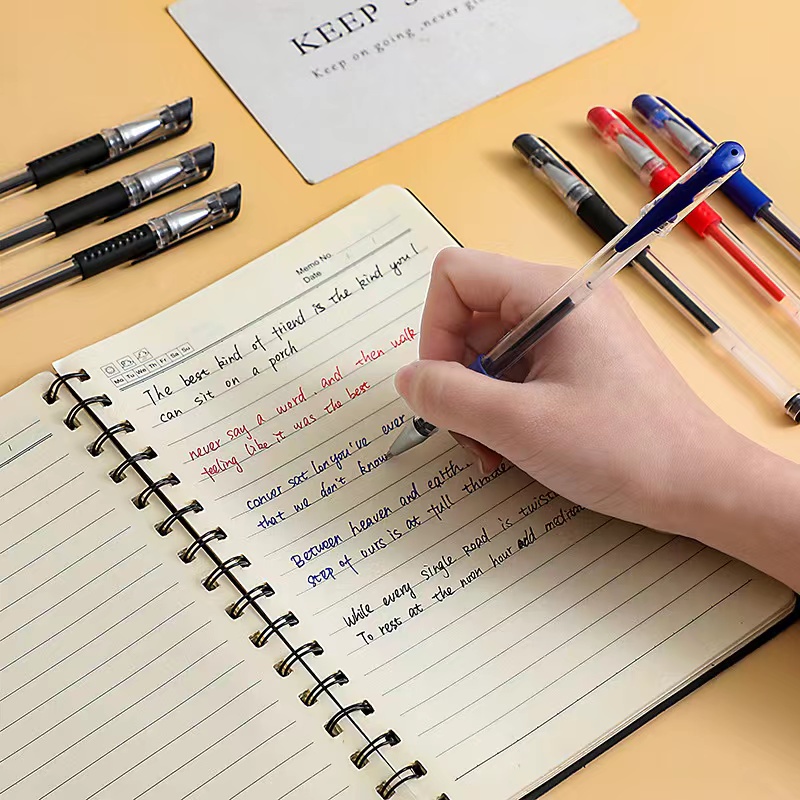 KEEP
Keep on going .never gi
Memo No.
Date / /
Mo Tu We Th Fr Sa Su
The best kind of friend is the kind you!
can sit on a porch
never say a word, and then walk
feeling like it was the best
conver sat lon you've ever
that we don't know
Between heaven and earth
step of ours is at full throttle
While every single Road is twist
To rest at the noon hour and meditat